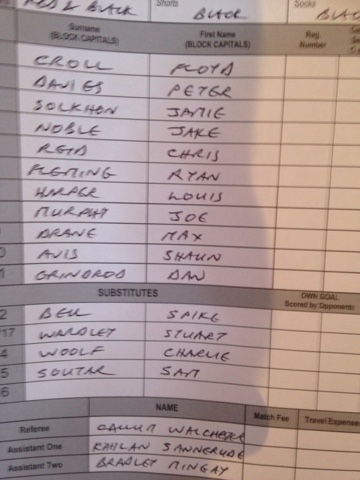 RED & BLACK Shorts BLACK Socks BLAC
Surname (BLOCK CAPITALS) First Name (BLOCK CAPITALS) Reg. Number
CROLL FLOYD
DAVIES PETER
SOLKHON JAMIE
NOBLE JAKE
REID CHRIS
FLEMING RYAN
HARPER LOUIS
MURPHY JOE
BRANE MAX
0 AVIS SHAUN
1 GRINDROD DAN
SUBSTITUTES OWN GOAL Scored by Opponents
2 BELL SPIKE
17 WARDLEY STUART
4 WOOLF CHARLIE
5 SOUTAR SAM
6
NAME Match Fee Travel Expense
Referee CALLUM WALCHESTER
Assistant One KAHLAN SANNERUDE
Assistant Two BRADLEY MINGAY